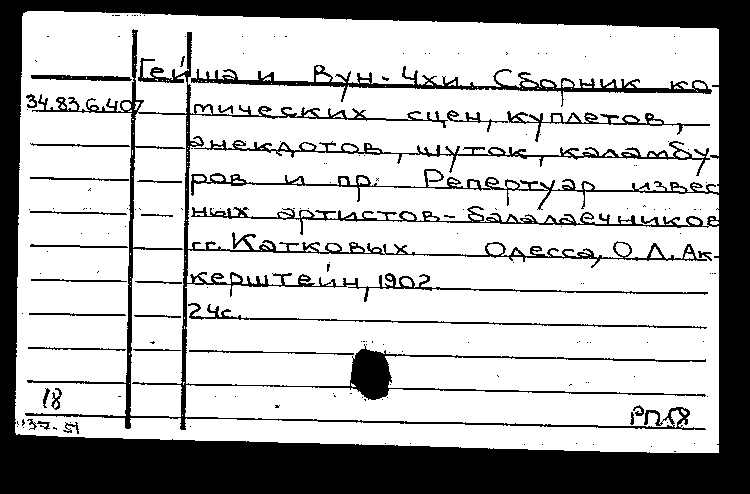 Гейша и Вун-Чхи. Сборник ко-
34.83.6.407 мических сцен, куплетов,
анекдотов, шуток, каламбу-
ров и пр. Репертуар извес
ных артистов-балалаечников
гг. Катковых. Одесса, О.Л. Ак-
керштейн, 1902.
24с.
18
РПБ